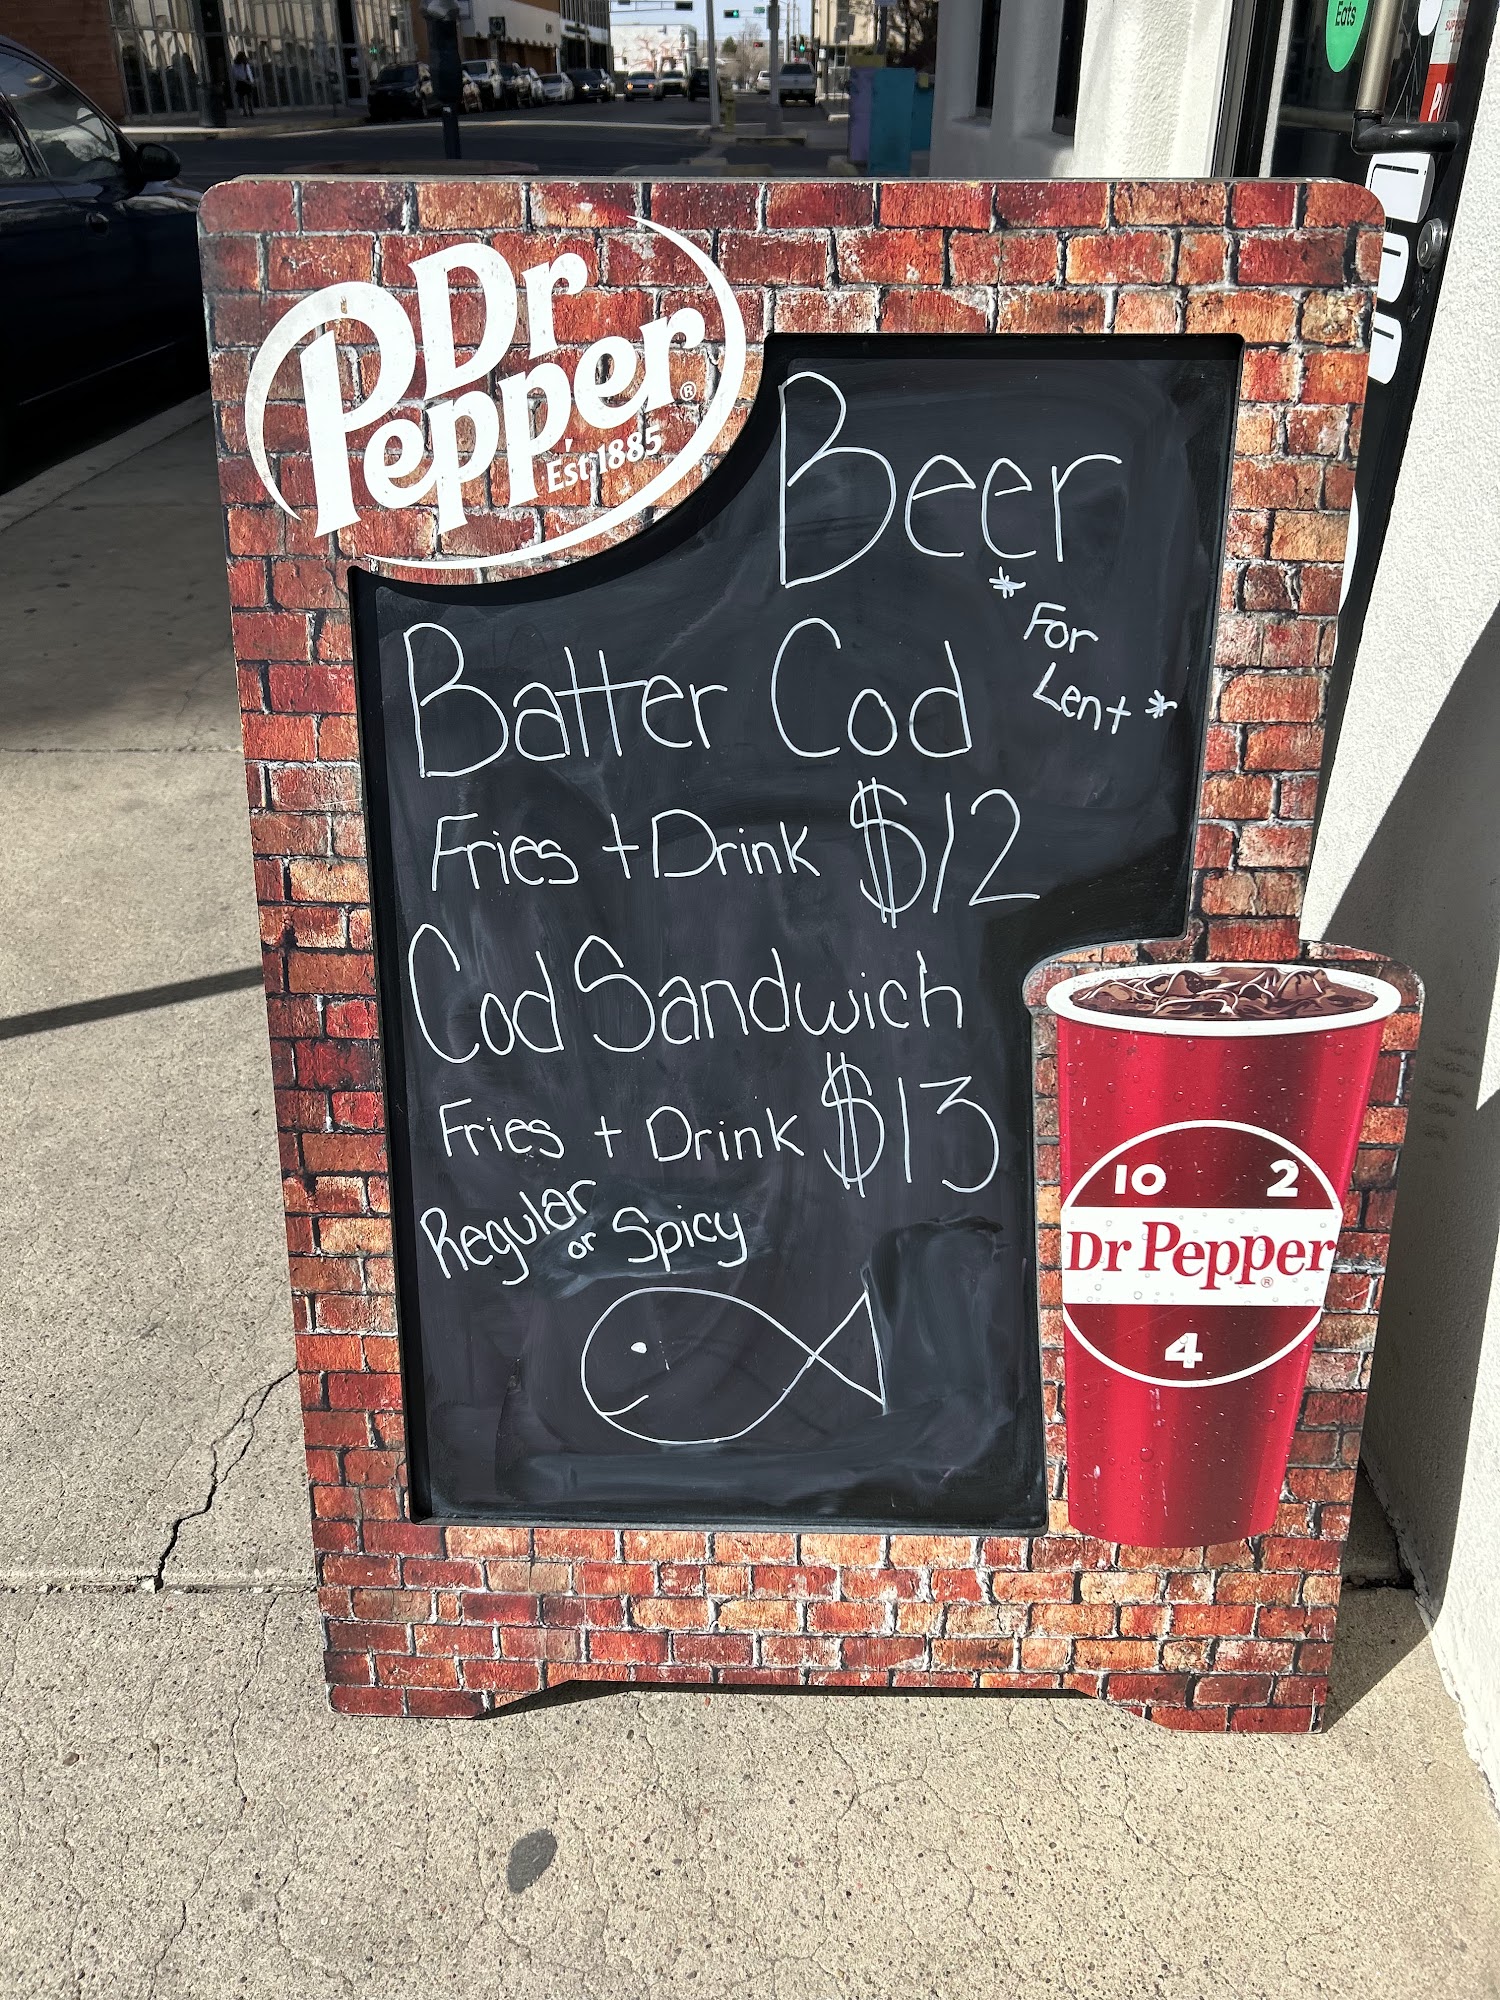 Dr
Pepper®
Est. 1885
Beer
Batter Cod
* For
Lent *
Fries + Drink $12
Cod Sandwich
Fries + Drink $13
Regular
or Spicy
10 2
Dr Pepper®
4
Eats